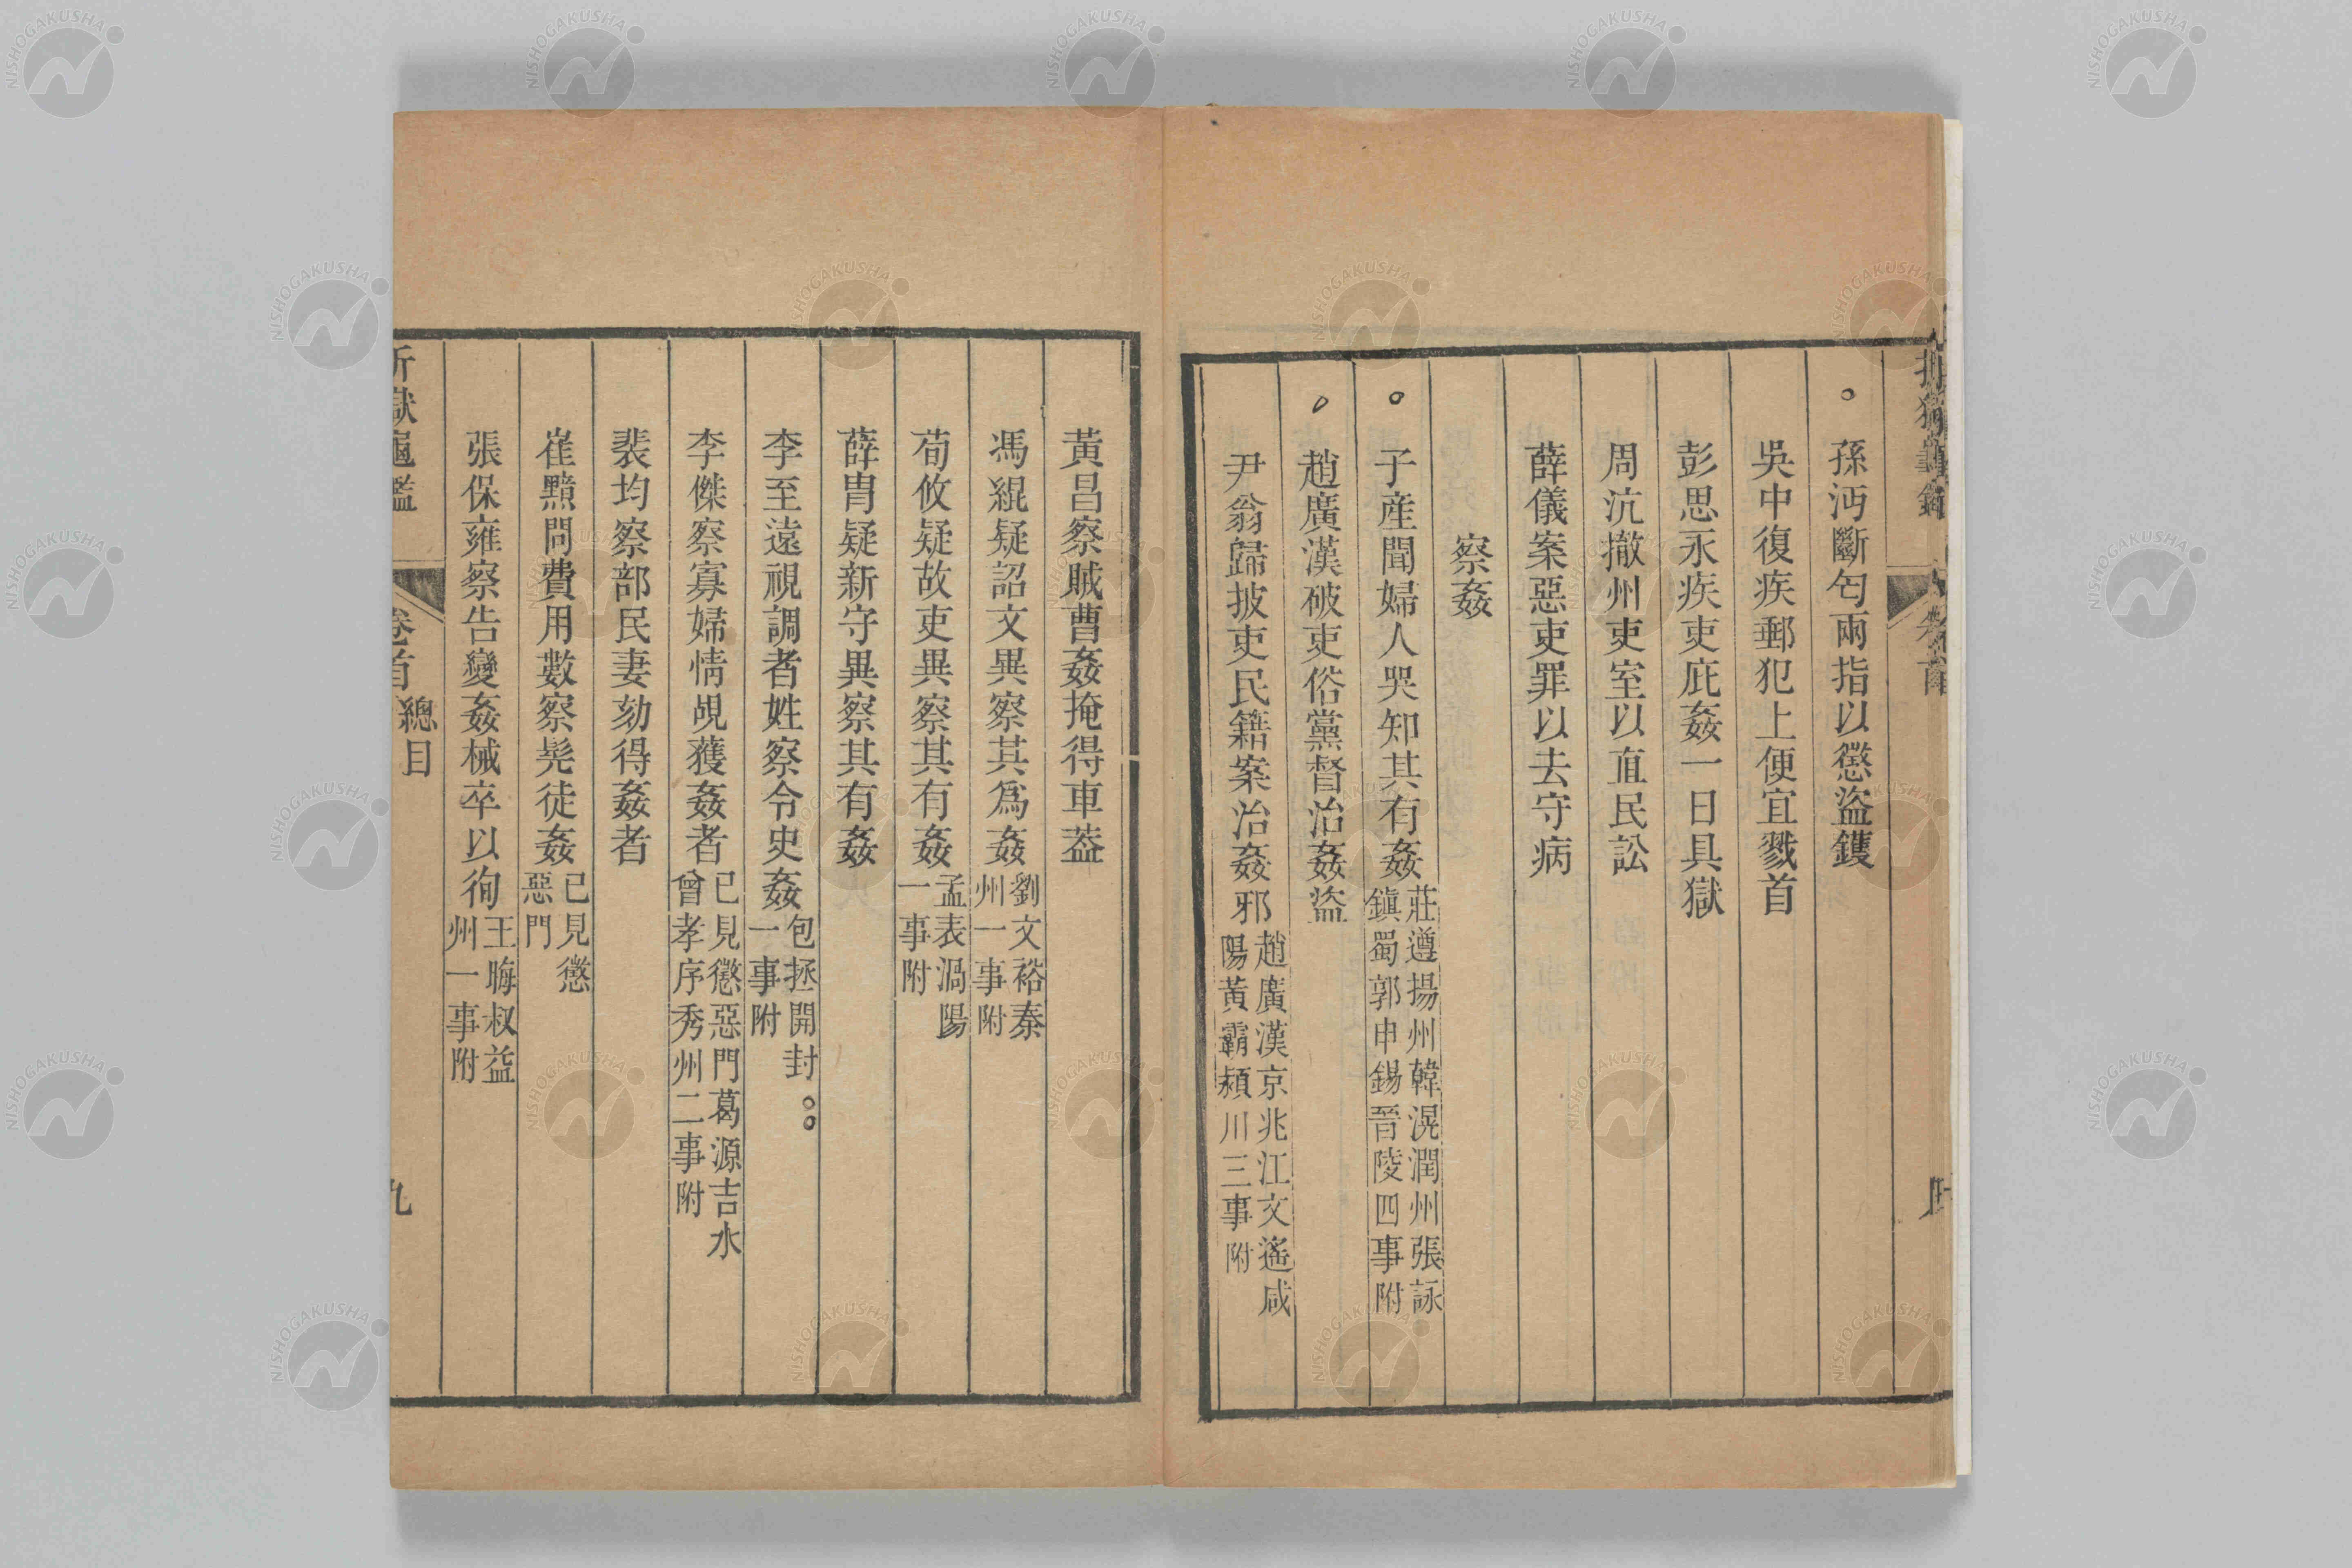 孫沔斷匂兩指以懲盜鑊
吳中復疾郵犯上便宜戮首
彭思永疾吏庇姦一日具獄
周沆撤州吏室以直民訟
薛儀案惡吏罪以去守病
察姦
子産聞婦人哭知其有姦莊遵揚州韓滉潤州張詠鎭蜀郭申錫晉陵四事附
趙廣漢破吏俗黨督治姦盜
尹翁歸披吏民籍案治姦邪趙廣漢京兆江文遙咸陽黃霸潁川三事附
黃昌察賊曹姦掩得車葢
馮緄疑詔文異察其爲姦劉文裕秦州一事附
荀攸疑故吏異察其有姦孟表渦陽一事附
薛冑疑新守異察其有姦
李至遠視調者姓察令史姦包拯開封一事附
李傑察寡婦情覘獲姦者已見懲惡門葛源吉水曾孝序秀州二事附
裴均察部民妻劾得姦者
崔黯問費用數察髡徒姦已見懲惡門
張保雍察告變姦械卒以徇王晦叔益州一事附
折獄龜鑑 卷首 總目 九
NISHOGAKUSHA